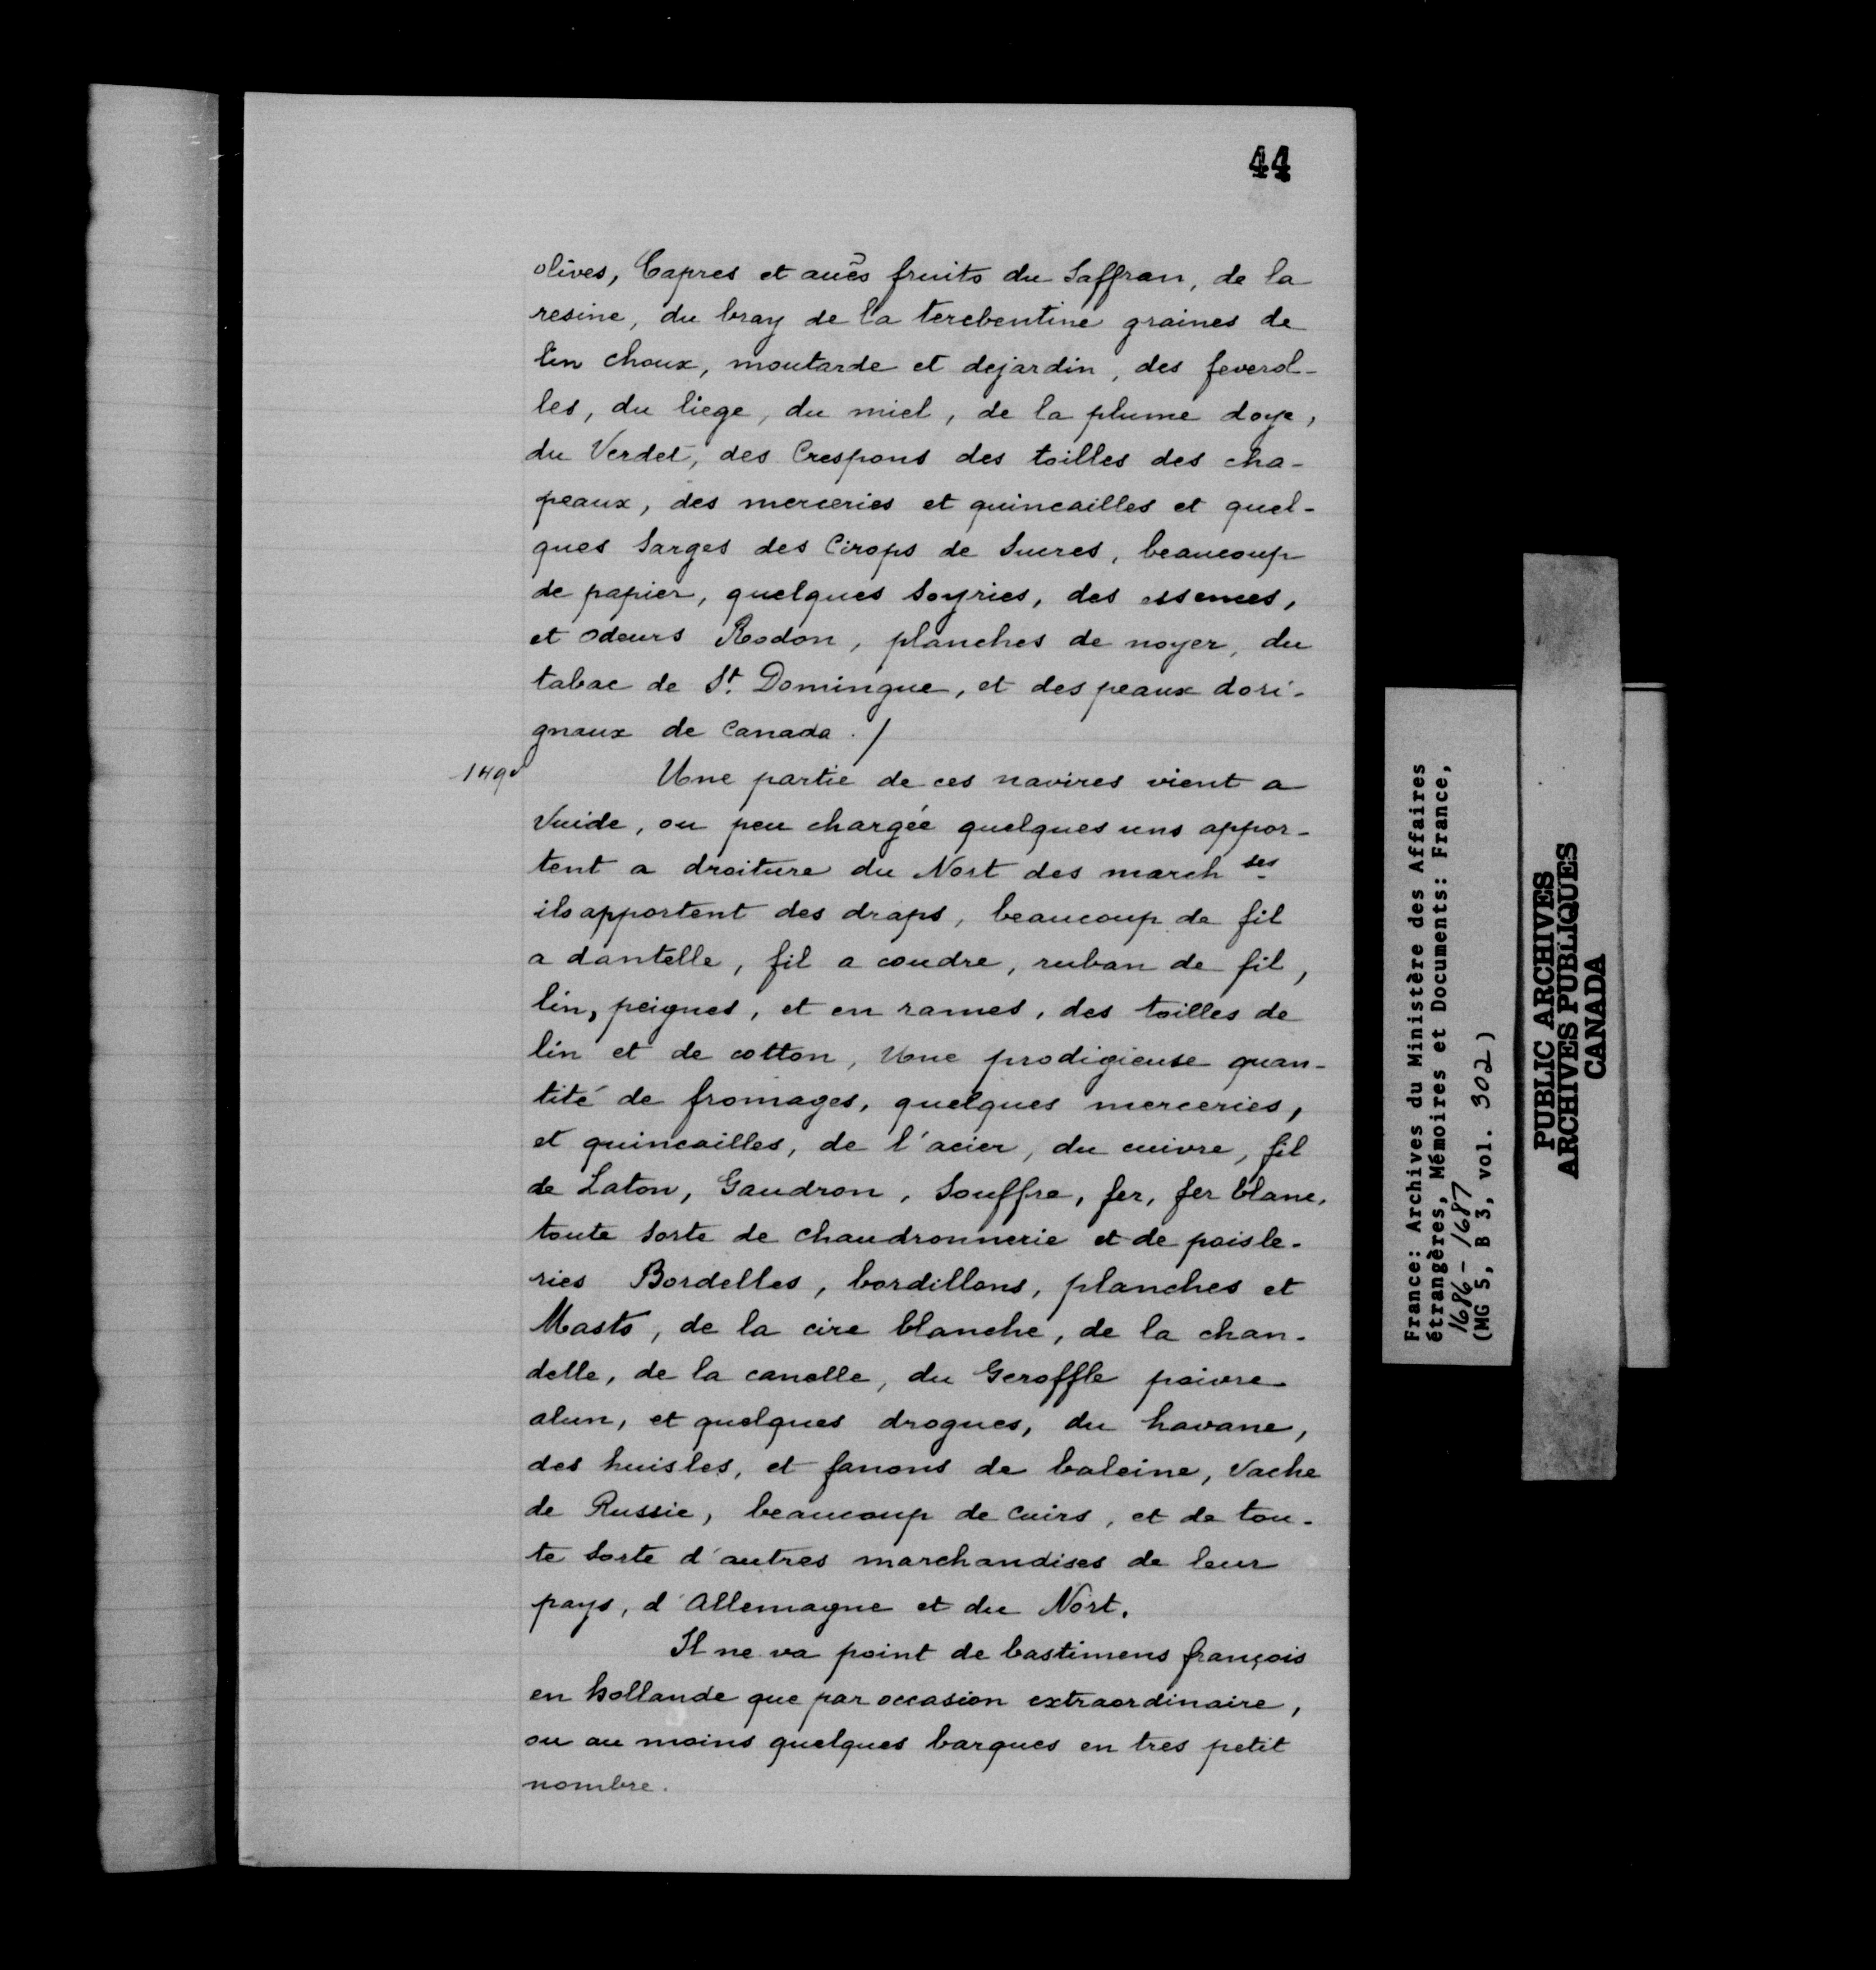 44
olives, Capres et auẽs fruits du Saffran, de la
resine, du bray de la terebentine graines de
lin choux, moutarde et dejardin, des feverol-
les, du liege, du miel, de la plume doye,
du Verdet, des Crespons des toilles des cha-
peaux, des merceries et quincailles et quel-
ques Sarges des Cirops de Sucres, beaucoup
de papier, quelques soyries, des essences,
et odeurs Rodon, planches de noyer, du
tabac de St. Domingue, et des peaux dori-
gnaux de Canada. /
149v
Une partie de ces navires vient a
Vuide, ou peu chargée quelques uns appor-
tent a droiture du Nort des march ses
ils apportent des draps, beaucoup de fil
a dantelle, fil a coudre, ruban de fil,
lin, peignes, et en rames, des toilles de
lin et de cotton, Une prodigieuse quan-
tité de fromages, quelques merceries,
et quincailles, de l'acier, du cuivre, fil
de Laton, Gaudron, Souffre, fer, fer blanc,
toute sorte de chaudronnerie et de poisle-
ries Bordelles, bordillons, planches et
Masts, de la cire blanche, de la chan-
delle, de la canelle, du Geroffle poivre
alun, et quelques drogues, du havane,
des huisles, et fanons de baleine, Vache
de Russie, beaucoup de Cuirs, et de tou-
te sorte d'autres marchandises de leur
pays, d'Allemagne et du Nort.
Il ne va point de bastimens françois
en hollande que par occasion extraordinaire,
ou au moins quelques barques en tres petit
nombre.
France: Archives du Ministère des Affaires
étrangères, Mémoires et Documents: France,
1686-1687
(MG 5, B 3, vol. 302)
PUBLIC ARCHIVES
ARCHIVES PUBLIQUES
CANADA